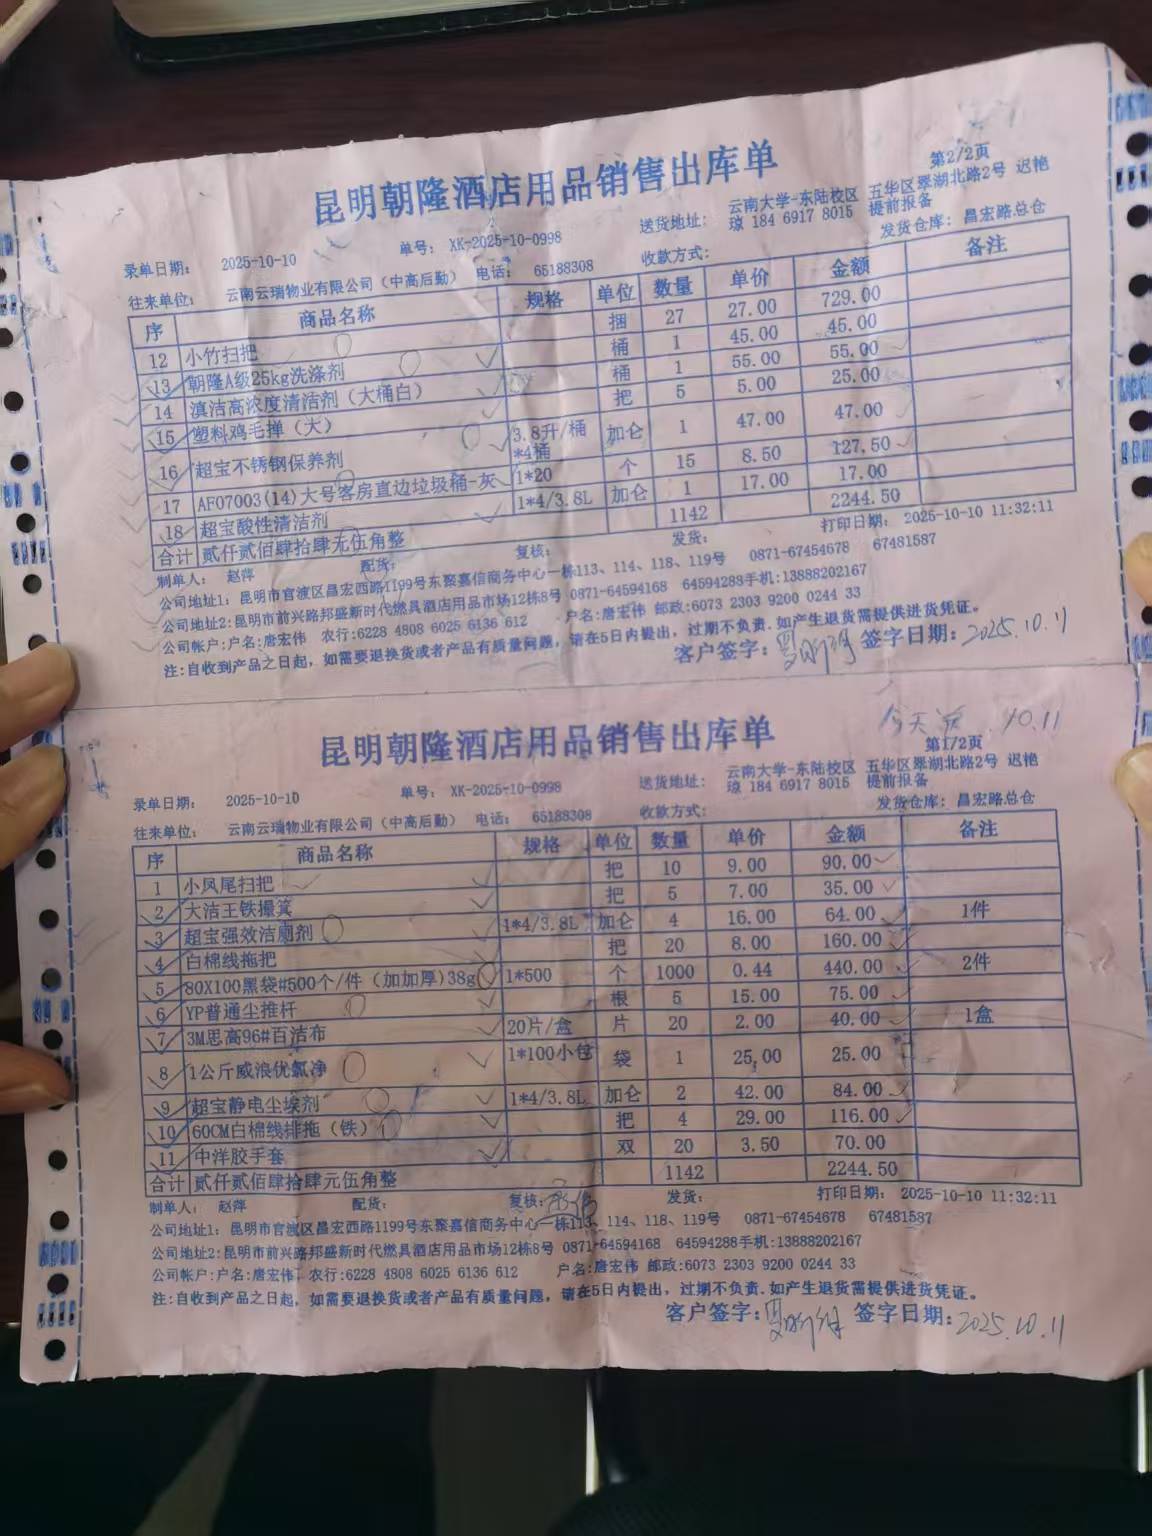 昆明朝隆酒店用品销售出库单
第2/2页
录单日期: 2025-10-10 单号: XK-2025-10-0998 送货地址: 云南大学-东陆校区 五华区翠湖北路2号 迟艳琼 184 6917 8015 提前报备
往来单位: 云南云瑞物业有限公司（中高后勤） 电话: 65188308 收款方式: 发货仓库: 昌宏路总仓
序 商品名称 规格 单位 数量 单价 金额 备注
12 小竹扫把 捆 27 27.00 729.00
13 朝隆A级25kg洗涤剂 桶 1 45.00 45.00
14 滇洁高浓度清洁剂（大桶白） 桶 1 55.00 55.00
15 塑料鸡毛掸（大） 把 5 5.00 25.00
16 超宝不锈钢保养剂 3.8升/桶*4桶 加仑 1 47.00 47.00
17 AF07003(14)大号客房直边垃圾桶-灰 1*20 个 15 8.50 127.50
18 超宝酸性清洁剂 1*4/3.8L 加仑 1 17.00 17.00
合计 贰仟贰佰肆拾肆元伍角整 1142 2244.50
制单人: 赵萍 配货: 复核: 发货: 打印日期: 2025-10-10 11:32:11
公司地址1: 昆明市官渡区昌宏西路1199号东聚嘉信商务中心一栋113、114、118、119号 0871-67454678 67481587
公司地址2:昆明市前兴路邦盛新时代燃具酒店用品市场12栋8号 0871-64594168 64594288手机:13888202167
公司帐户:户名:唐宏伟 农行:6228 4808 6025 6136 612 户名:唐宏伟 邮政:6073 2303 9200 0244 33
注:自收到产品之日起，如需要退换货或者产品有质量问题，请在5日内提出，过期不负责.如产生退货需提供进货凭证。
客户签字: 签字日期: 2025.10.11
今天 10.11
昆明朝隆酒店用品销售出库单
第1/2页
录单日期: 2025-10-10 单号: XK-2025-10-0998 送货地址: 云南大学-东陆校区 五华区翠湖北路2号 迟艳琼 184 6917 8015 提前报备
往来单位: 云南云瑞物业有限公司（中高后勤） 电话: 65188308 收款方式: 发货仓库: 昌宏路总仓
序 商品名称 规格 单位 数量 单价 金额 备注
1 小凤尾扫把 把 10 9.00 90.00
2 大洁王铁撮箕 把 5 7.00 35.00
3 超宝强效洁厕剂 1*4/3.8L 加仑 4 16.00 64.00 1件
4 白棉线拖把 把 20 8.00 160.00
5 80X100黑袋#500个/件（加加厚)38g 1*500 个 1000 0.44 440.00 2件
6 YP普通尘推杆 根 5 15.00 75.00
7 3M思高96#百洁布 20片/盒 片 20 2.00 40.00 1盒
8 1公斤威浪优氯净 1*100小包 袋 1 25.00 25.00
9 超宝静电尘埃剂 1*4/3.8L 加仑 2 42.00 84.00
10 60CM白棉线排拖（铁） 把 4 29.00 116.00
11 中洋胶手套 双 20 3.50 70.00
合计 贰仟贰佰肆拾肆元伍角整 1142 2244.50
制单人: 赵萍 配货: 复核: 发货: 打印日期: 2025-10-10 11:32:11
公司地址1: 昆明市官渡区昌宏西路1199号东聚嘉信商务中心一栋113、114、118、119号 0871-67454678 67481587
公司地址2:昆明市前兴路邦盛新时代燃具酒店用品市场12栋8号 0871-64594168 64594288手机:13888202167
公司帐户:户名:唐宏伟 农行:6228 4808 6025 6136 612 户名:唐宏伟 邮政:6073 2303 9200 0244 33
注:自收到产品之日起，如需要退换货或者产品有质量问题，请在5日内提出，过期不负责.如产生退货需提供进货凭证。
客户签字: 签字日期: 2025.10.11